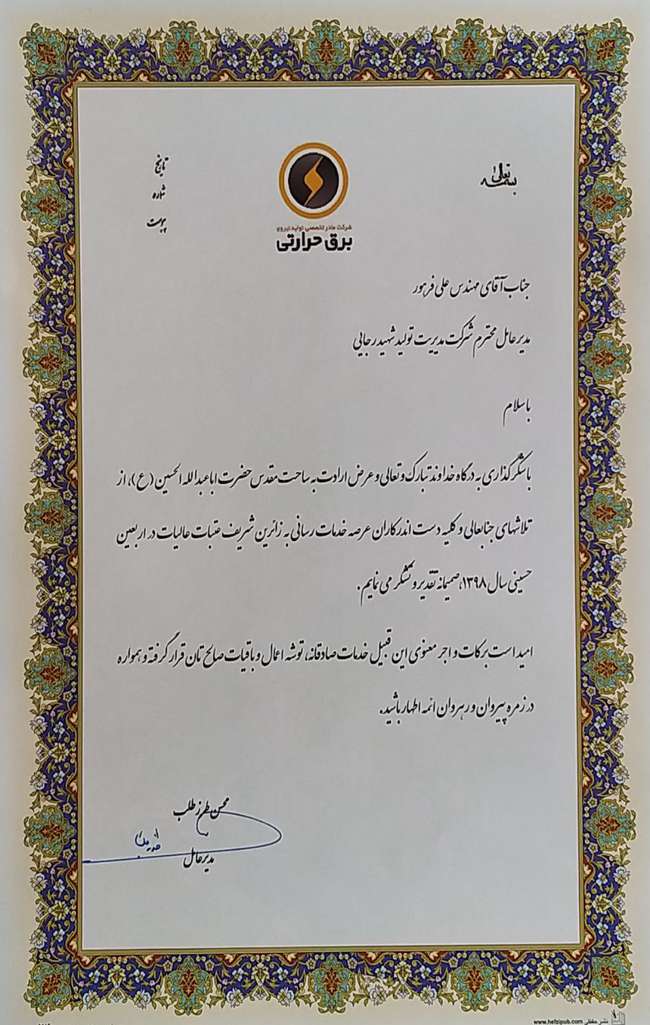 بسمه تعالی
تاریخ
شماره
پیوست
شرکت مادر تخصصی تولید نیروی
برق حرارتی
جناب آقای مهندس علی فرهور
مدیرعامل محترم شرکت مدیریت تولید شهید رجایی
با سلام
با شکرگذاری به درگاه خداوند تبارک و تعالی و عرض ارادت به ساحت مقدس حضرت اباعبدالله الحسین (ع)، از
تلاشهای جنابعالی و کلیه دست اندرکاران عرصه خدمات رسانی به زائرین شریف عتبات عالیات در اربعین
حسینی سال ۱۳۹۸، صمیمانه تقدیر و تشکر می نمایم.
امید است برکات و اجر معنوی این قبیل خدمات صادقانه، توشه اعمال و باقیات صالح تان قرار گرفته و همواره
در زمره پیروان و رهروان ائمه اطهار باشید.
محسن طرزطلب
مدیرعامل
نشر حفظی www.hefzipub.com